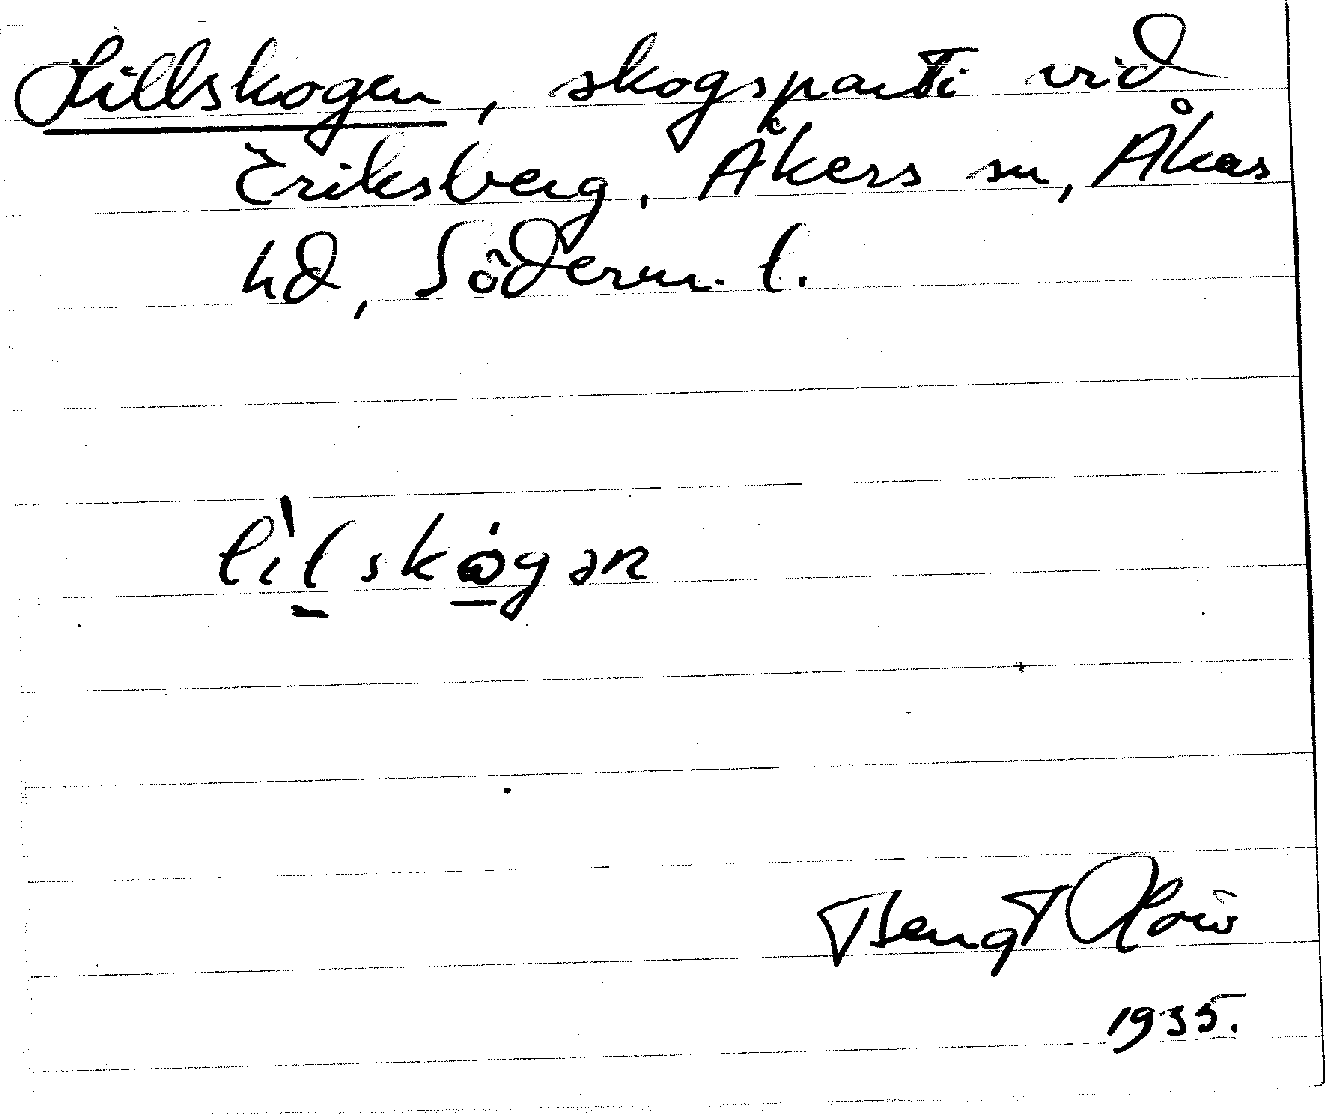 Lillskogen, skogsparti vid
Eriksberg, Åkers sn, Åkers
hd, Söderm. l.
lìlskógən
Bengt
1935.